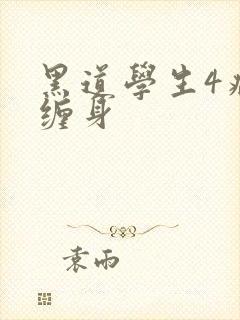 黑道學生4
缠身
袁雨